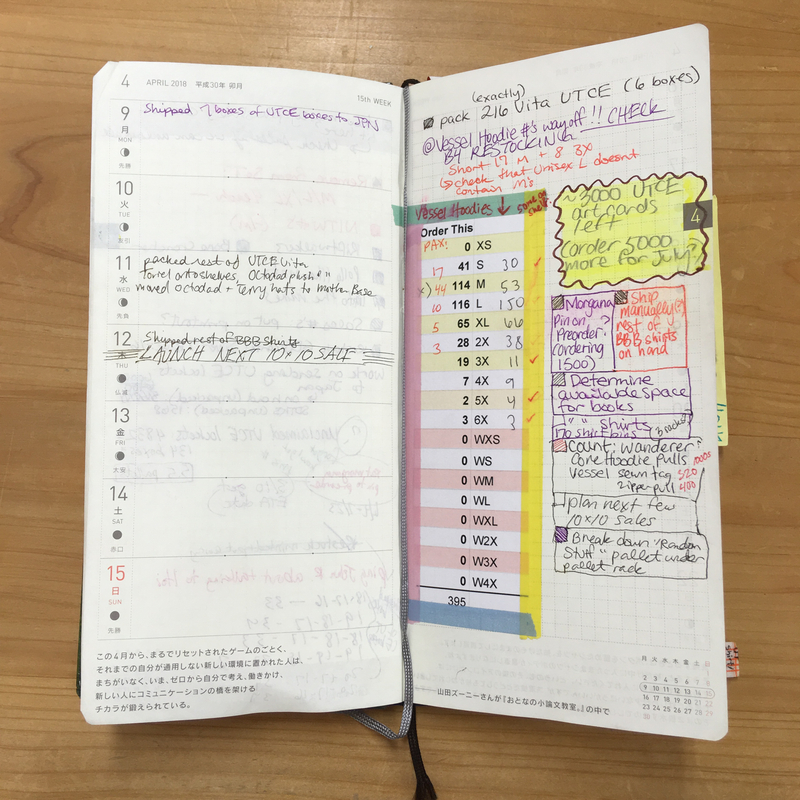 4 APRIL 2018 平成30年 卯月
15th WEEK
9 Shipped 7 boxes of UTCE boxes to JPN
月
MON
先勝
10
火
TUE
友引
11 packed rest of UTCE Vita
水
WED
moved octodad + Terry hats to mother Base
先負
12 Shipped rest of BBB shirts
木 LAUNCH NEXT 10x10 SALE
THU
仏滅
13
金
FRI
大安
14
土
SAT
赤口
15
日
SUN
先勝
この4月から、まるでリセットされたゲームのごとく、
それまでの自分が通用しない新しい環境に置かれた人は、
まちがいなく、いま、ゼロから自分で考え、働きかけ、
新しい人にコミュニケーションの橋を架ける
チカラが鍛えられている。
(exactly)
pack 216 Vita UTCE (6 boxes)
@Vessel Hoodie #'s way off!! CHECK
B4 RESTOCKING
Short 17 M + 8 3X
check that Unisex L doesnt
contain M's
Vessel Hoodies ↓ some on shelf
Order This
PAX: 0 XS
17 41 S 30 ✓
44 114 M 53
10 116 L 150
5 65 XL 66
3 28 2X 38
19 3X 11 ✓
7 4X 9
2 5X 4 ✓
3 6X 3 ✓
0 WXS
0 WS
0 WM
0 WL
0 WXL
0 W2X
0 W3X
0 W4X
395
~3000 UTCE
art cards
left
(order 5000
more for July?)
4
Morgana
Pin on
Preorder
(ordering
1500)
Ship
manually?
rest of
BBB shirts
on hand
Determine
available space
for books
" " shirts
no shirt bins (3 racks)
Count: wanderer?
Cone Hoodie Pulls 1000s
Vessel sewn tag 320
zipper pull 400
plan next few
10x10 sales
Break down "Random
Stuff" pallet under
pallet rack
山田ズーニーさんが『おとなの小論文教室。』の中で
月 火 水 木 金 土 日
1
2 3 4 5 6 7 8
9 10 11 12 13 14 15
16 17 18 19 20 21 22
23 24 25 26 27 28 29
30